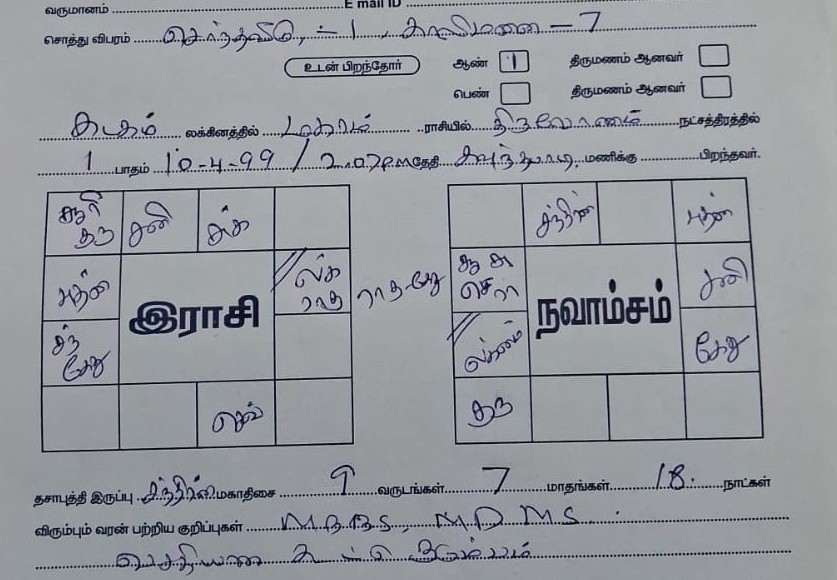 வருமானம் E mail ID
சொத்து விபரம் சொந்தவீடு, - 1, காலிமனை - 7
உடன் பிறந்தோர் ஆண் 1 திருமணம் ஆனவர்
பெண் திருமணம் ஆனவர்
கடகம் லக்கினத்தில் மகரம் ராசியில் திருவோணம் நட்சத்திரத்தில்
1 பாதம் 10-4-99 / 2.07 P.m தேதி மணிக்கு பிறந்தவர்.
சூரி குரு சனி சுக்
புதன் லக் ராகு ராகு-கேது
சந் கேது
இராசி
செவ்
சந்திரன் புதன்
சூ சு செவ் சனி
லக்னம் கேது
நவாம்சம்
குரு
தசாபுத்தி இருப்பு சந்திரன் மகாதிசை 9 வருடங்கள் 7 மாதங்கள் 18 நாட்கள்
விரும்பும் வரன் பற்றிய குறிப்புகள் M.B.B.S, M.D M.S